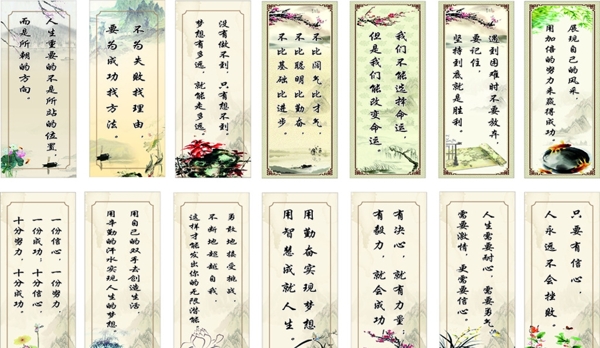 人生重要的不是所站的位置
而是所朝的方向。
不为失败找理由
要为成功找方法
没有做不到，只有想不到，
梦想有多远，就能走多远。
不比阔气比才气
不比聪明比勤奋
不比基础比进步。
我们不能选择命运，
但是我们能改变命运
遇到困难时不要放弃，
要记住，
坚持到底就是胜利。
展现自己的风采，
用加倍的努力来赢得成功。
一份信心，一份努力，
一份成功，十分信心
十分努力，十分成功。
用自己的双手去创造生活
用辛勤的汗水实现人生的梦想。
勇敢地接受挑战，
不断地超越自我。
这样才能发出你的无限潜能
用勤奋实现梦想
用智慧成就人生。
有决心，就有力量；
有毅力，就会成功
人生需要耐心，需要勇气
需要激情，更需要信心。
只要有信心，
人永远不会挫败。